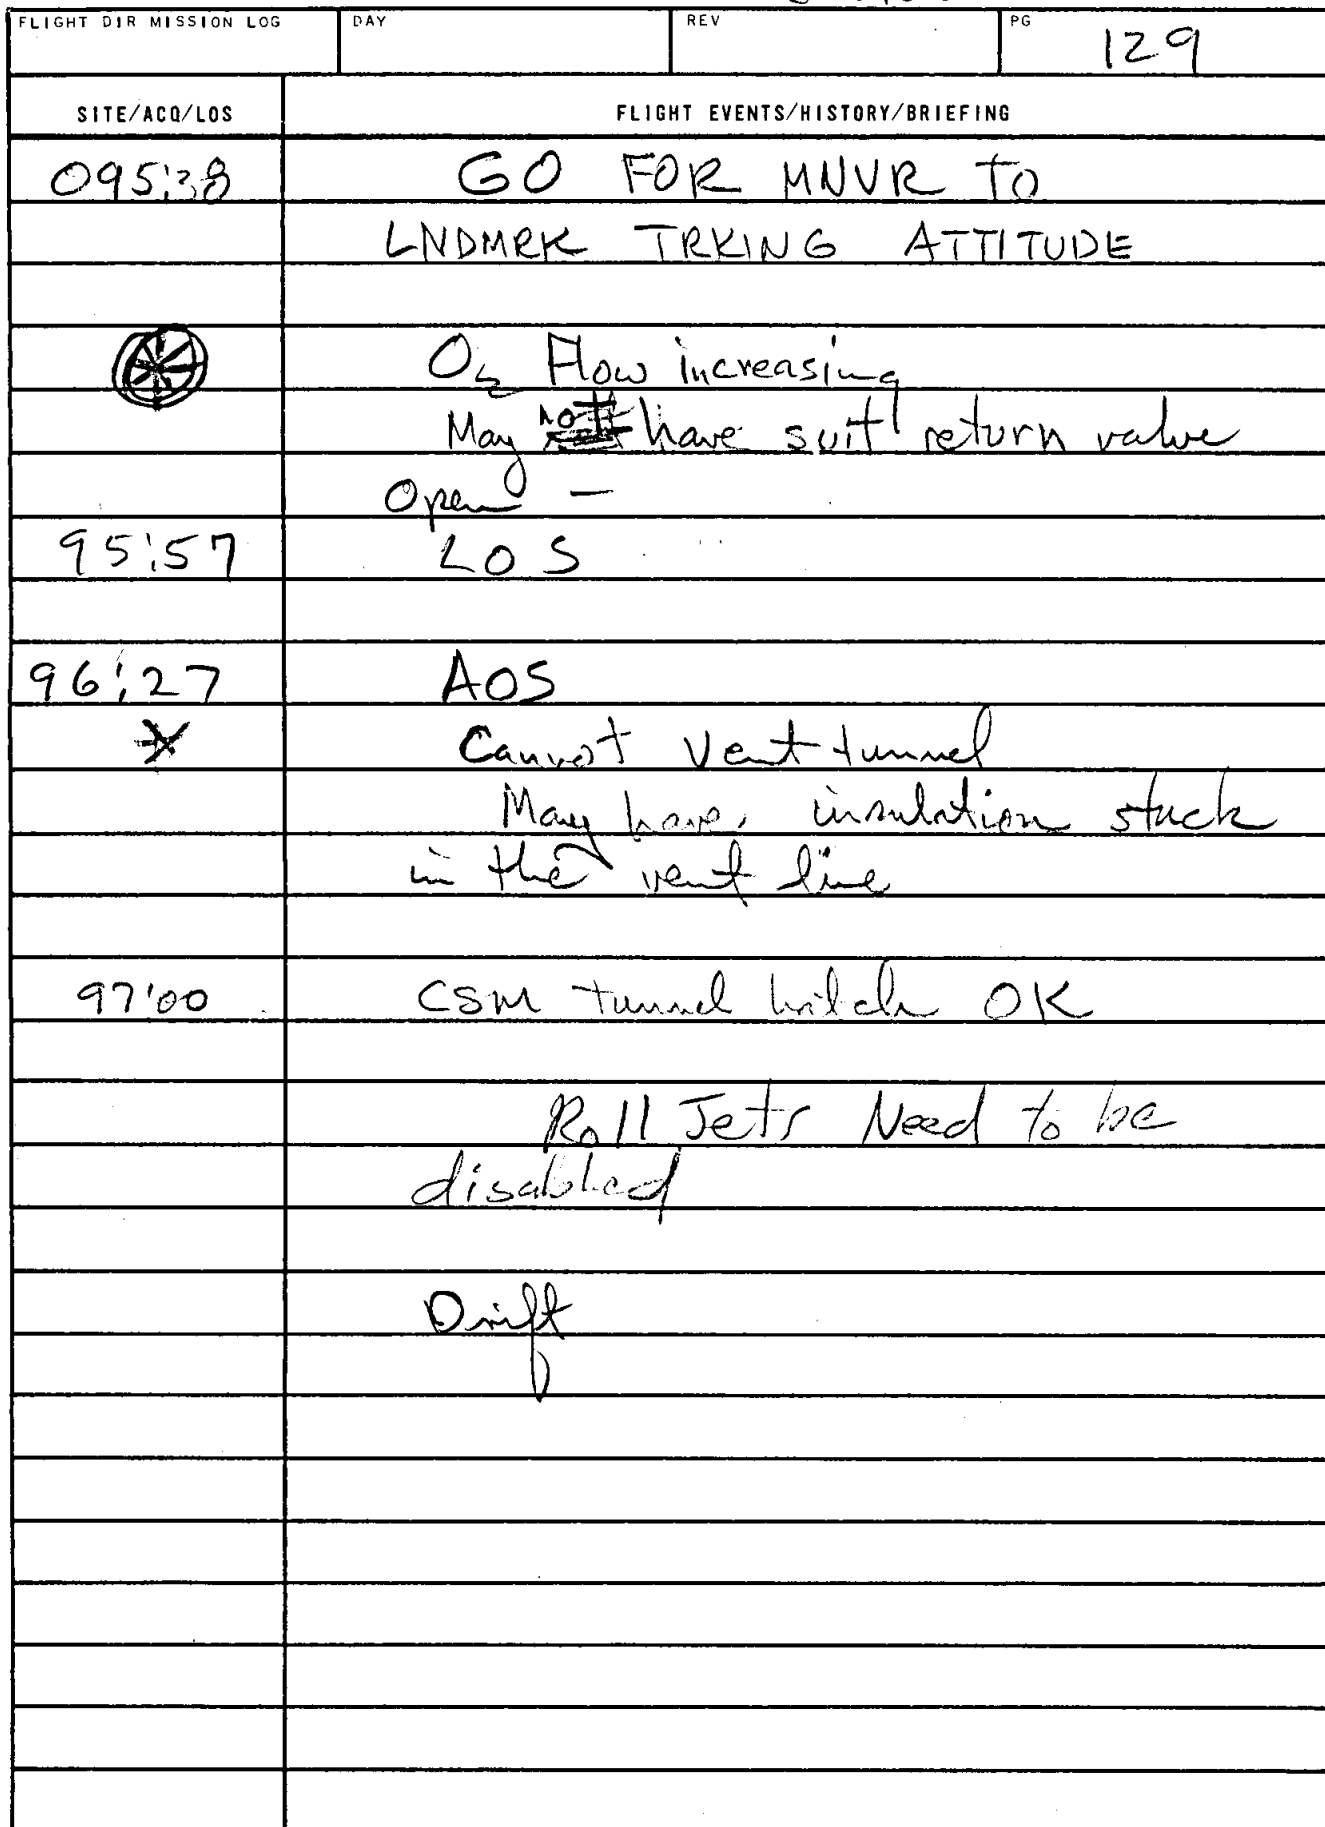 FLIGHT DIR MISSION LOG DAY REV PG 129
SITE/ACQ/LOS FLIGHT EVENTS/HISTORY/BRIEFING
095:38 GO FOR MNVR TO
LNDMRK TRKING ATTITUDE
O2 Flow increasing
May not have suit return valve
Open —
95:57 LOS
96:27 AOS
Cannot vent tunnel
May have insulation stuck
in the vent line
97:00 CSM tunnel hatch OK
Roll Jets Need to be
disabled
Drift